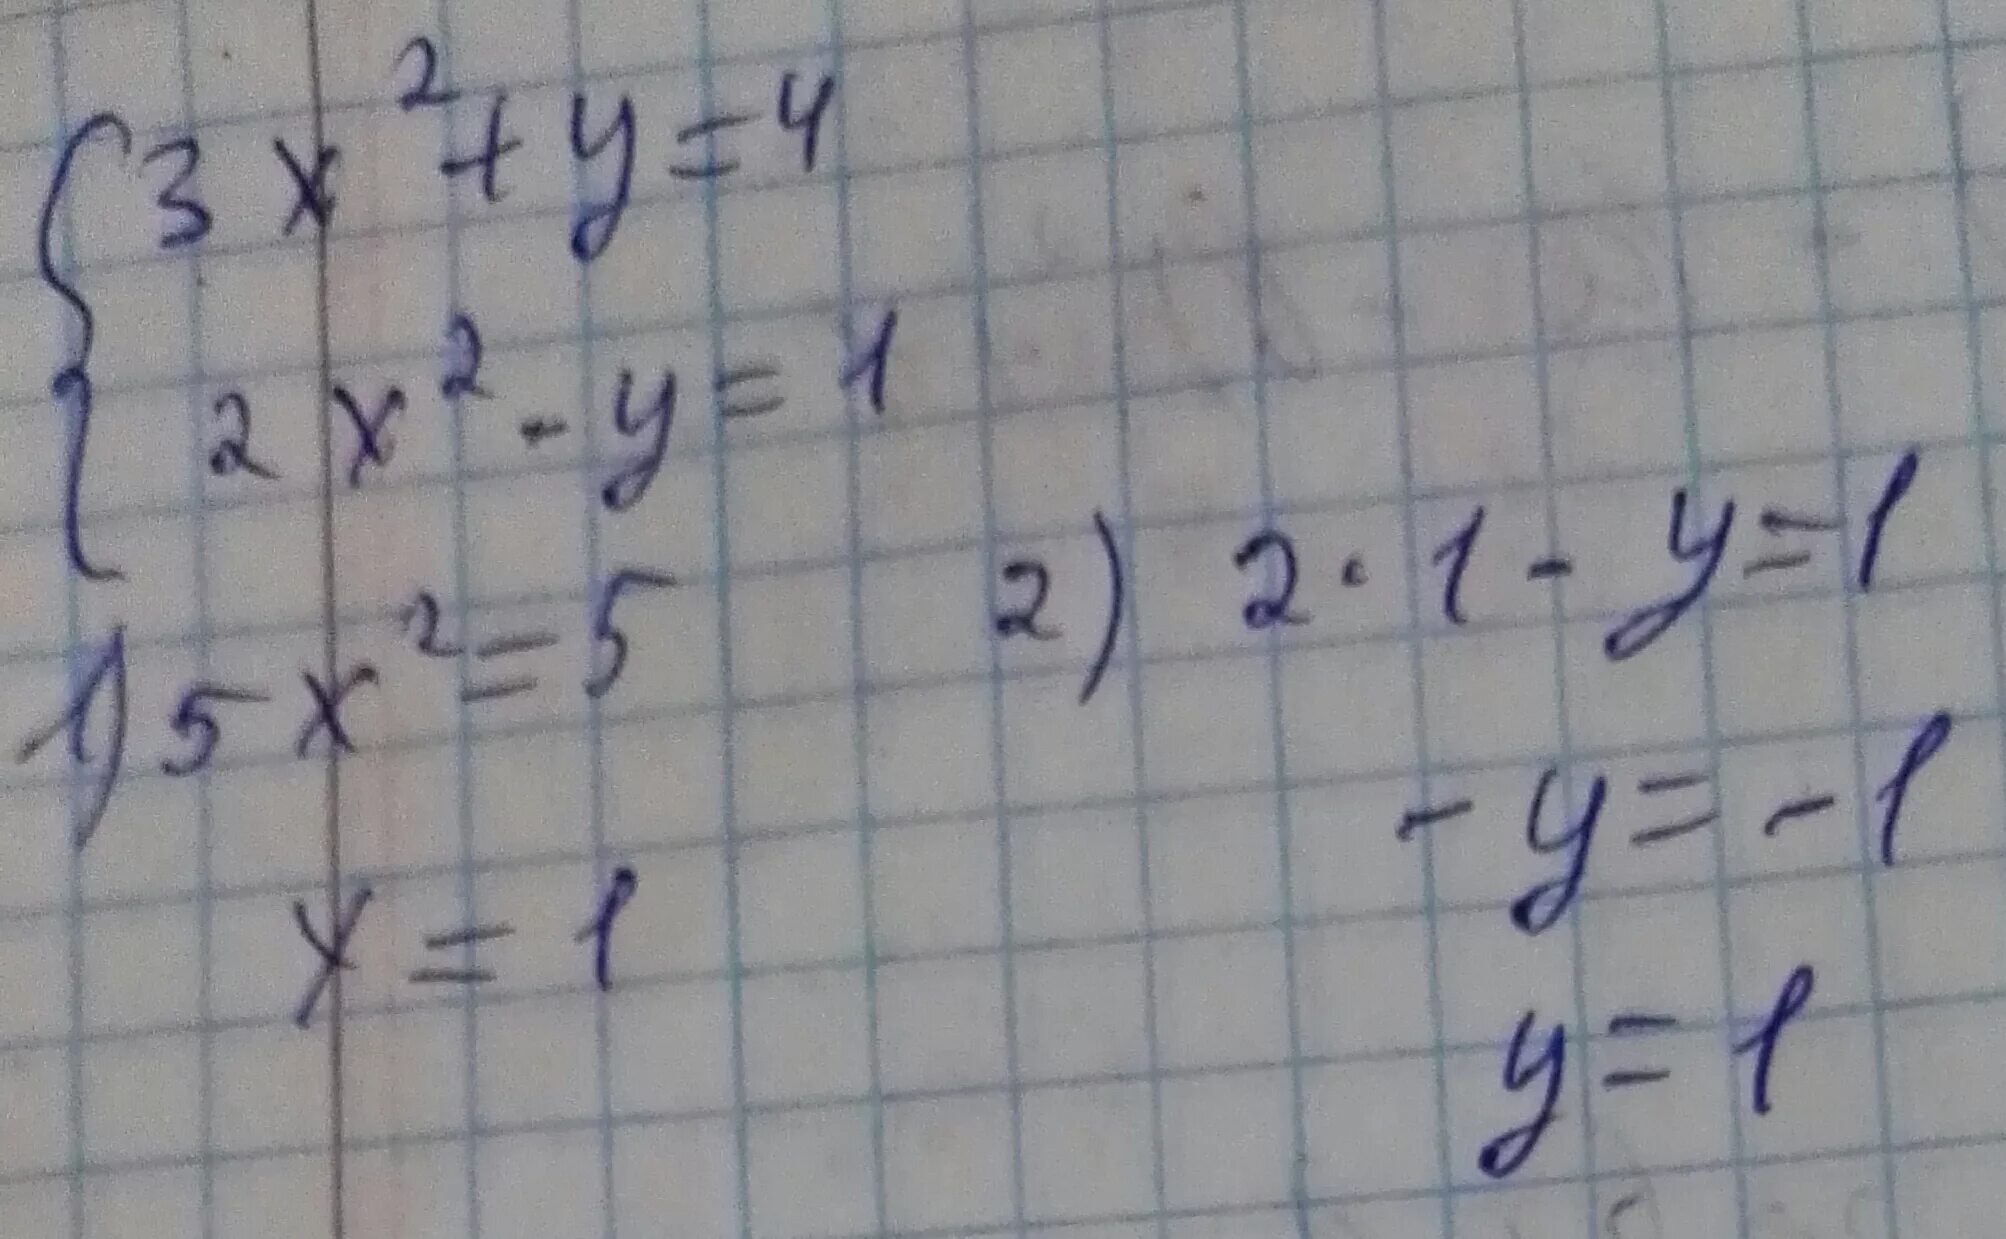 3x² + y = 4
2x² - y = 1
1) 5x² = 5
x = 1
2) 2 · 1 - y = 1
- y = - 1
y = 1